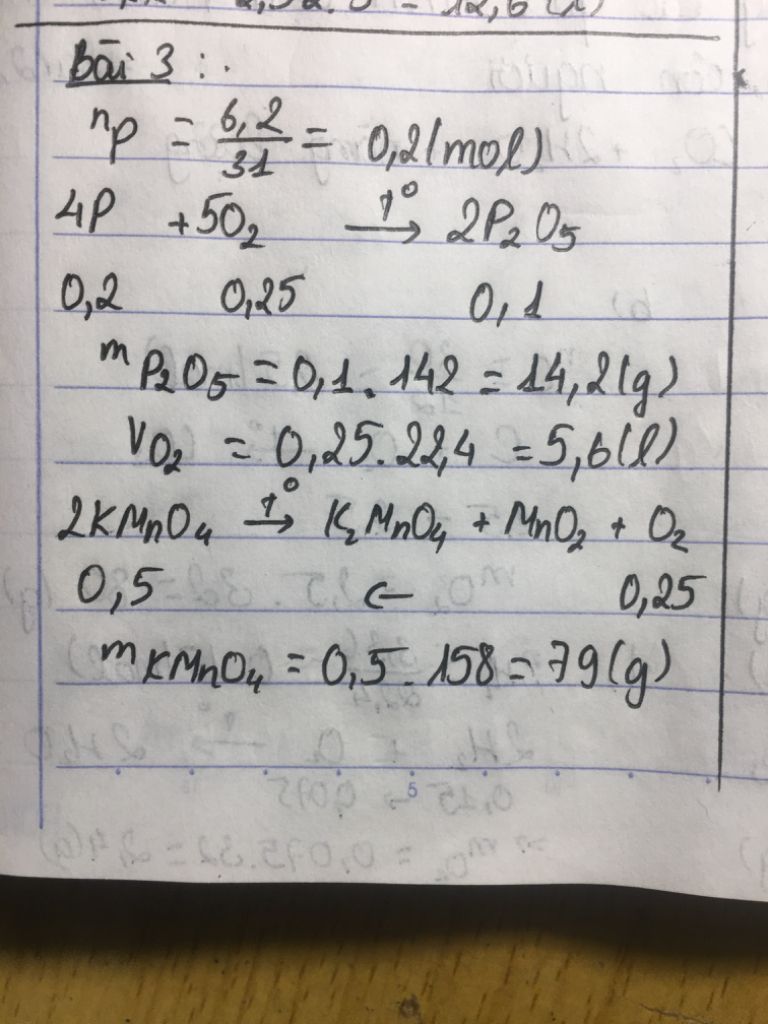 2,52.5 = 12,6 (l)
Bài 3 :.
nP = 6,2/31 = 0,2 (mol)
4P + 5O2 —t°→ 2P2O5
0,2 0,25 0,1
mP2O5 = 0,1 . 142 = 14,2 (g)
VO2 = 0,25 . 22,4 = 5,6 (l)
2KMnO4 —t°→ K2MnO4 + MnO2 + O2
0,5 ← 0,25
mKMnO4 = 0,5 . 158 = 79 (g)
5